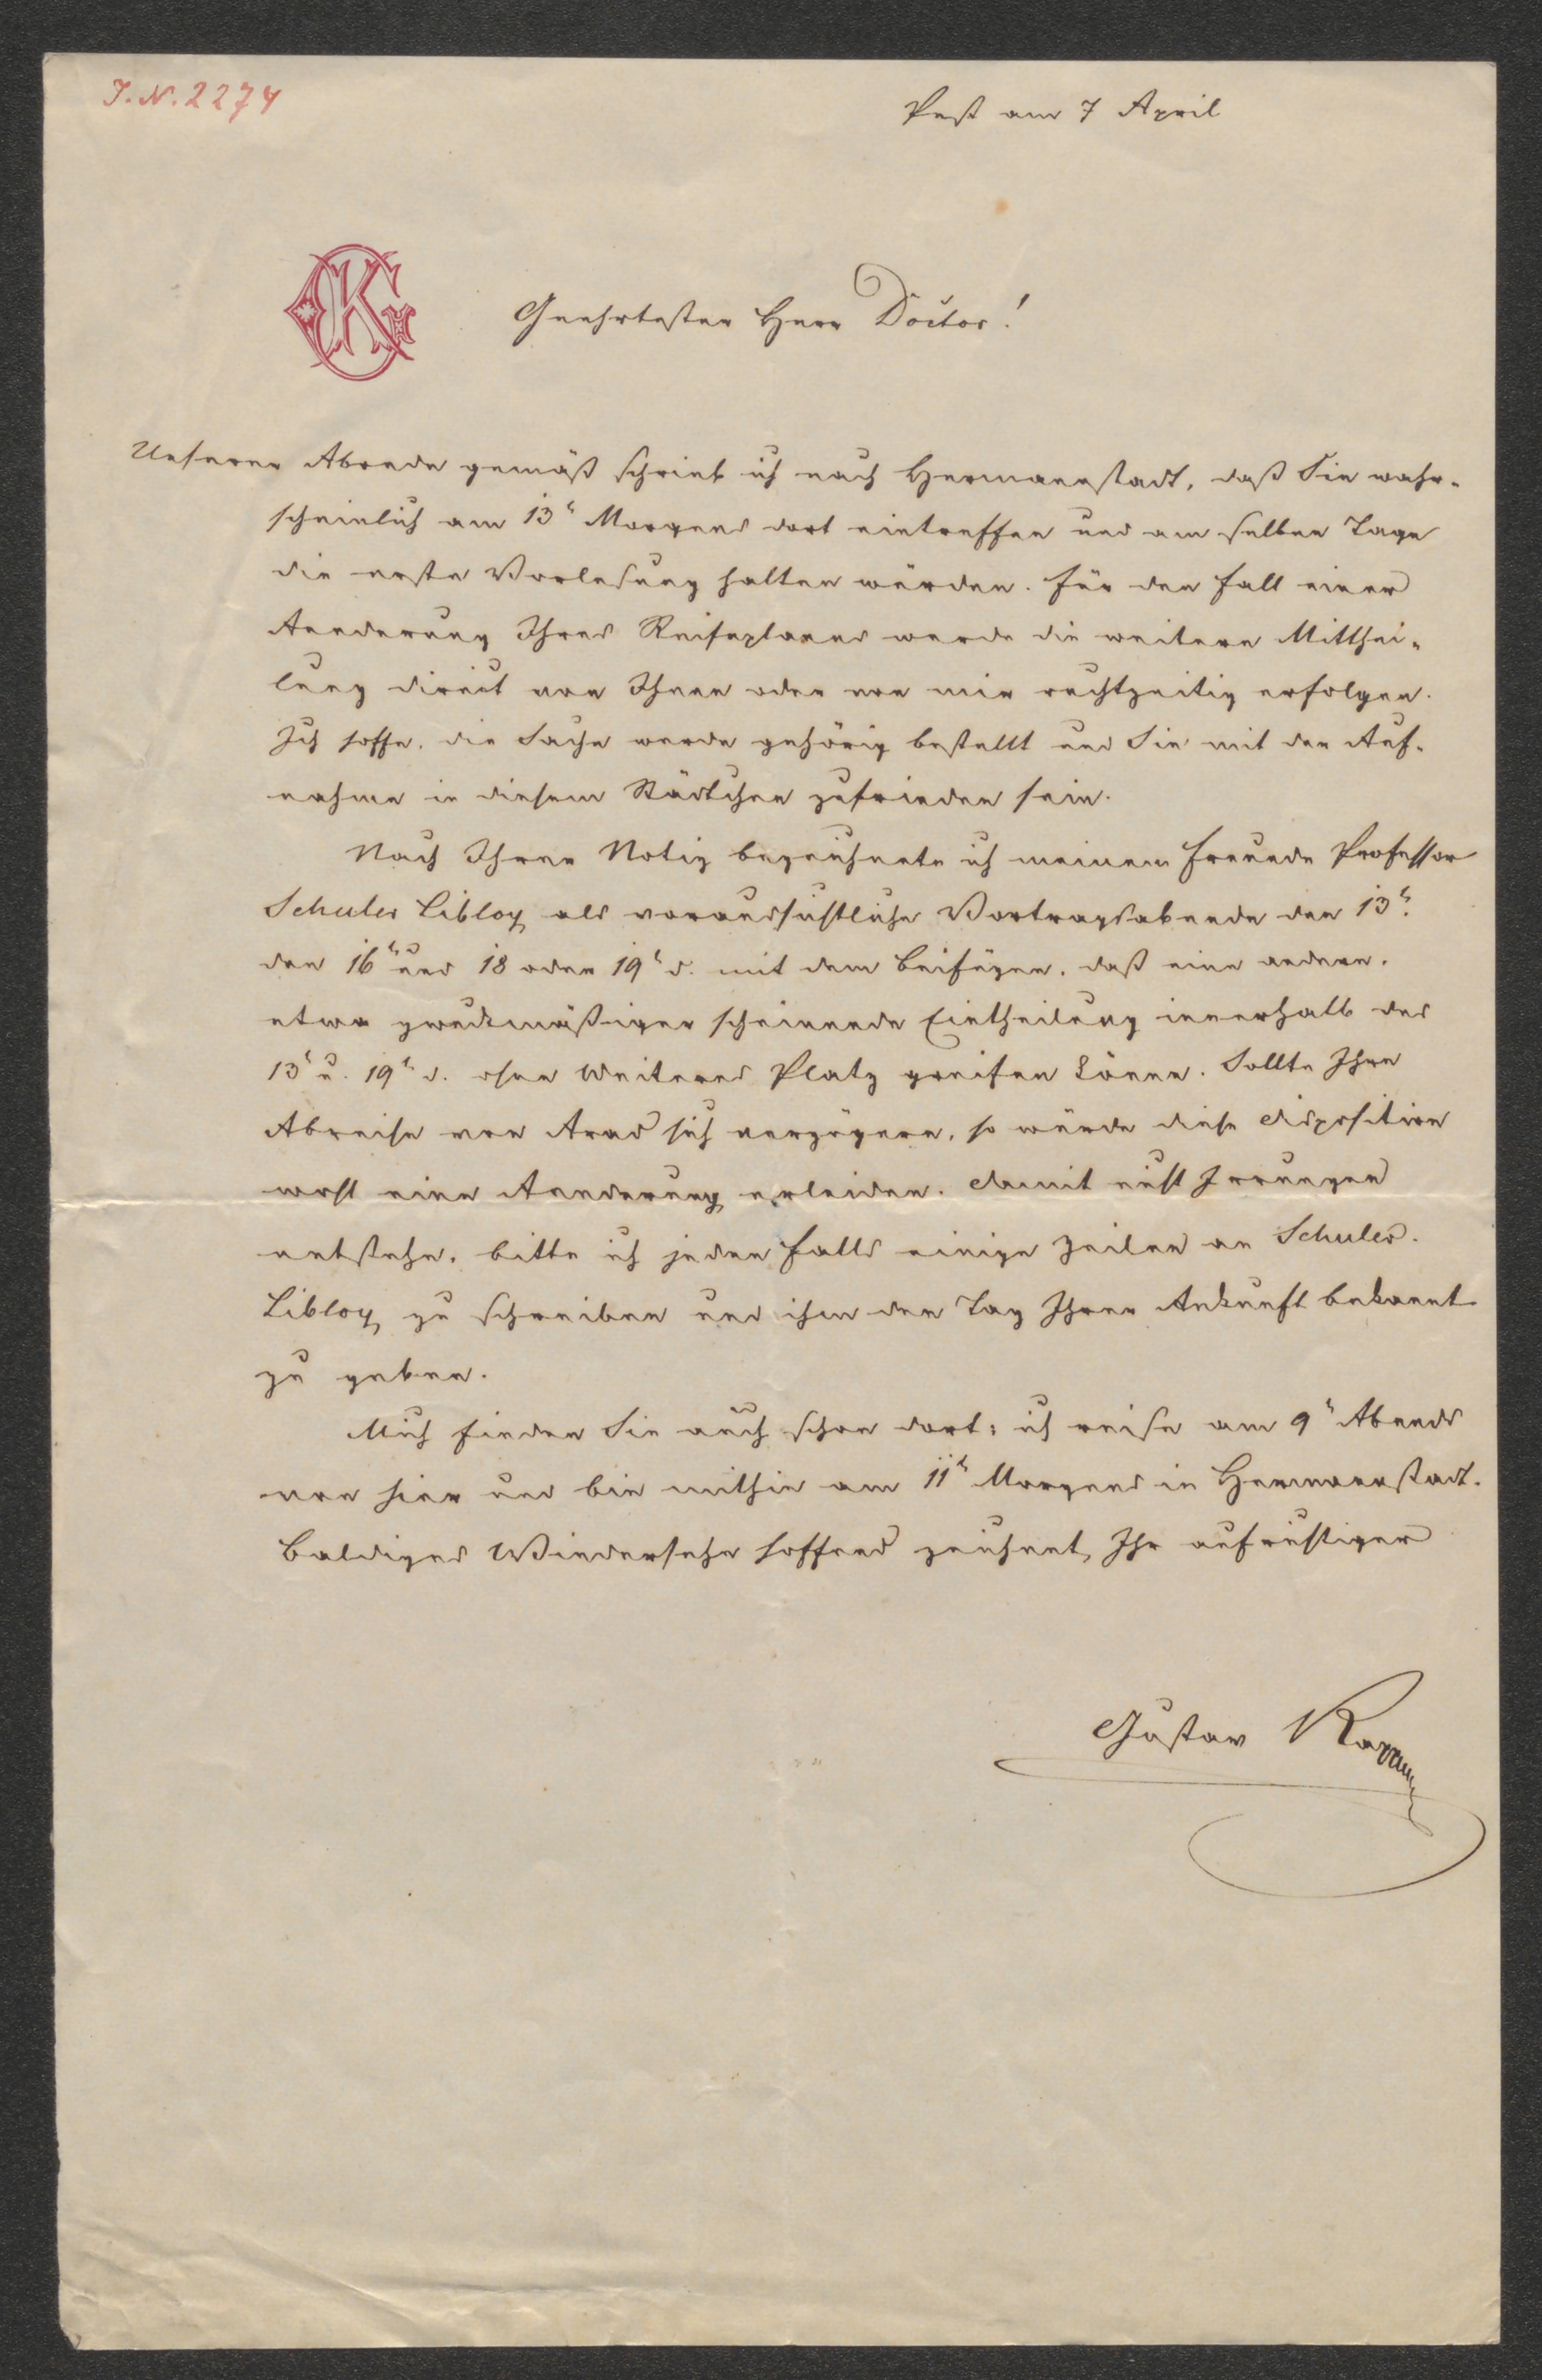 J. N. 2274
Pest am 7 April
GK
Geehrtester Herr Doctor!
Unserer Abrede gemäß schrieb ich nach Hermannstadt, daß Sie wahr-
scheinlich am 13t Morgens dort eintreffen und am selben Tage
die erste Vorlesung halten würden. Für den Fall einer
Aenderung Ihres Reiseplanes werde die weitere Mitthei-
lung direct von Ihnen oder von mir rechtzeitig erfolgen.
Ich hoffe, die Sache werde gehörig bestellt und Sie mit der Auf-
nahme in diesem Städtchen zufrieden sein.
Nach Ihrer Notiz bezeichnete ich meinem Freunde Professor
Schuler Libloy als voraussichtliche Vortragsabende den 13t,
den 16t und 18 oder 19t d. mit dem Beifügen, daß eine andere,
etwa zweckmäßiger scheinende Eintheilung innerhalb des
13t u. 19t d. ohne Weiteres Platz greifen könne. Sollte Ihre
Abreise von Arad sich verzögern, so würde diese Disposition
wohl eine Aenderung erleiden. Damit nicht Irrungen
entstehe, bitte ich jeden Falls einige Zeilen an Schuler-
Libloy zu schreiben und ihm den Tag Ihrer Ankunft bekannt
zu geben.
Mich finden Sie auch schon dort; ich reise am 9t Abends
von hier und bin mithin am 11t Morgens in Hermannstadt.
Baldiges Wiedersehn hoffend zeichnet Ihr aufrichtiger
Gustav